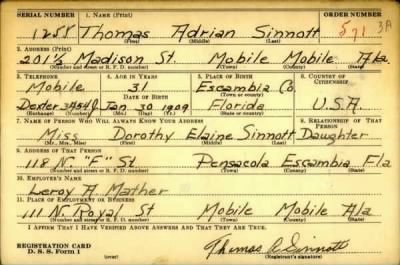 SERIAL NUMBER 1. NAME (Print) ORDER NUMBER
1288 Thomas Adrian Sinnott 571 3A
(First) (Middle) (Last)
2. ADDRESS (Print)
201½ Madison St. Mobile Mobile Ala
(Number and street or R. F. D. number) (Town) (County) (State)
3. TELEPHONE 4. AGE IN YEARS 5. PLACE OF BIRTH 6. COUNTRY OF CITIZENSHIP
Mobile 31 Escambia Co
DATE OF BIRTH (Town or county)
Dexter Jan 30 1909 Florida U.S.A
(Exchange) (Number) (Mo.) (Day) (Yr.) (State or country)
7. NAME OF PERSON WHO WILL ALWAYS KNOW YOUR ADDRESS 8. RELATIONSHIP OF THAT PERSON
Miss Dorothy Elaine Sinnott Daughter
(Mr., Mrs., Miss) (First) (Middle) (Last)
9. ADDRESS OF THAT PERSON
118 N. "F" St. Pensacola Escambia Fla
(Number and street or R. F. D. number) (Town) (County) (State)
10. EMPLOYER'S NAME
Leroy A Mather
11. PLACE OF EMPLOYMENT OR BUSINESS
111 N. Royal St Mobile Mobile Ala
(Number and street or R. F. D. number) (Town) (County) (State)
I AFFIRM THAT I HAVE VERIFIED ABOVE ANSWERS AND THAT THEY ARE TRUE.
REGISTRATION CARD
D. S. S. Form 1
Thomas A Sinnott
(Registrant's signature)